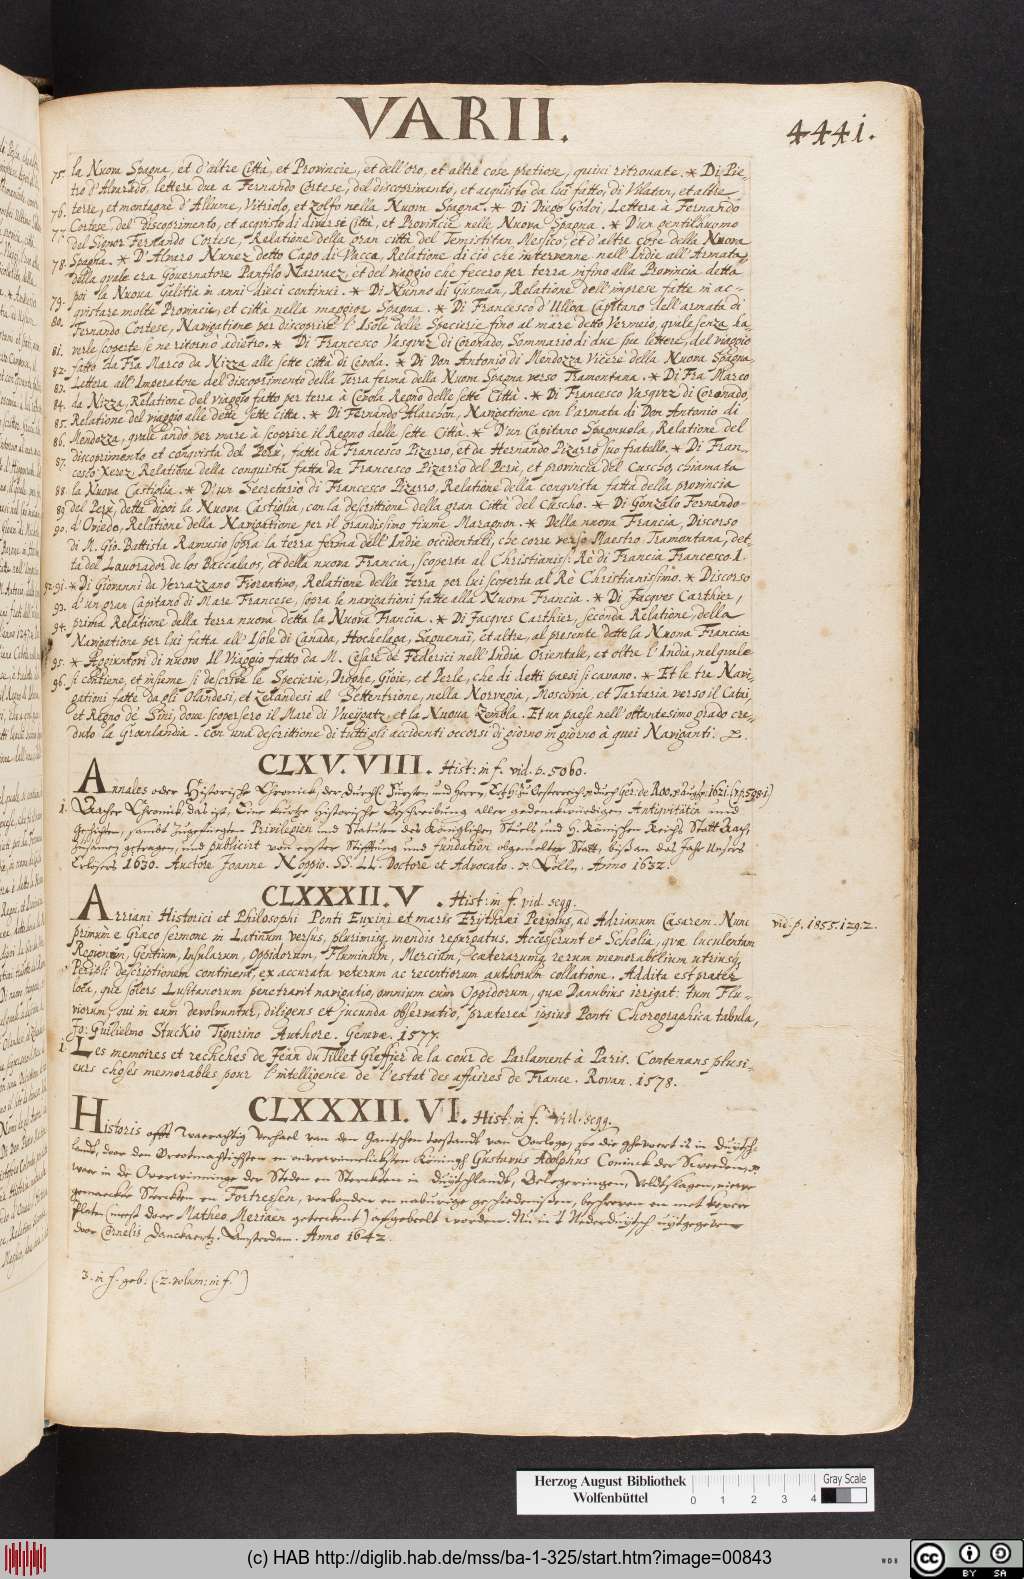 VARII.
4441.
75. la Nuova Spagna, et d'altre Città, et Provincie, et dell'oro, et altre cose pretiose, quivi ritrovate. * Di Pie-
tro d'Alvarado, lettere due a Fernando Cortese, del discoprimento, et acquisto da lui fatto, di Vtlatan, et altre
76. terre, et montagne d'Allume, Vitriolo, et Zolfo nella Nuova Spagna. * Di Diego Godoi, Lettera à Fernando
Cortese, del discoprimento, et acqvisto di diverse Città, et Provincie nelle Nuova Spagna. * D'un gentilhuomo
77. del Signor Fernando Cortese, Relatione della gran città del Temistitan Messico, et d'altre cose della Nuova
78. Spagna. * D'Alvaro Nunez detto Capo di Vacca, Relatione di ciò che intervenne nell' Indie all' Armata,
della qvale era Governatore Panfilo Narvaez, et del viaggio che fecero per terra infino alla Provincia detta
poi la Nuova Galitia in anni dieci continui. * Di Nunno di Gusman, Relatione dell'imprese fatte in ac-
79. qvistare molte Provincie, et città nella maggior Spagna. * Di Francesco d'Ulloa Capitano dell'armata di
80. Fernando Cortese, Navigatione per discoprire l'Isole delle Specierie fino al mare detto Vermeio, qvale senza ha,
81. verle scoperte se ne ritornò adietro. * Di Francesco Vasqvez di Coronado, Sommario di due sue lettere, del viaggio
82. fatto da Fra Marco da Nizza alle sette città di Cevola. * Di Don Antonio di Mendozza Vicere della Nuova Spagna,
83. Lettera all'Imperatore del discoprimento della Terra ferma della Nuova Spagna verso Tramontana. * Di Fra Marco
84. da Nizza, Relatione del viaggio fatto per terra à Cevola Regno delle sette Città. * Di Francesco Vasqvez di Coronado,
85. Relatione del viaggio alle dette sette citta. * Di Fernando Alarchon, Navigatione con l'armata di Don Antonio di
86. Mendozza, qvale andò per mare à scoprire il Regno delle sette Città. * D'un Capitano Spagnuola, Relatione del
discoprimento et conqvista del Perù, fatta da Francesco Pizarro, et da Hernando Pizarro suo fratello. * Di Fran-
87. cesco Xerez, Relatione della conquista fatta da Francesco Pizarro del Perù, et provincia del Cuscho, chiamata
88. la Nuova Castiglia. * D'un Secretario di Francesco Pizarro, Relatione della conqvista fatta della provincia
89 del Perù, detta dipoi la Nuova Castiglia, con la descrittione della gran Città del Cuscho. * Di Gonzalo Fernando-
90. d'Oviedo, Relatione della Navigatione per il grandissimo fiume Maragnon. * Della nuova Francia, Discorso
di M. Gio. Battista Ramusio sopra la terra ferma dell'Indie occidentali, che corre verso Maestro Tramontana, det
ta del Lavorador de los Baccalaos, et della nuova Francia, scoperta al Christianiss: Rè di Francia Francesco I.
92. 91. * Di Giovanni da Verrazzano Fiorentino, Relatione della terra per lui scoperta al Rè Christianissimo. * Discorso
93. d'un gran Capitano di Mare Francese, sopra le navigationi fatte alla Nuova Francia. * Di Jacqves Carthier,
94. prima Relatione della terra nuova detta la Nuova Francia. * Di Jacqves Carthier, seconda Relatione, della
Navigatione per lui fatta all'Isole di Canada, Hochelaga, Saguenai, et altre, al presente dette la Nuova Francia
95. * Aggiuntovi di nuovo Il Viaggio fatto da M. Cesare de Federici nell'India Orientale, et oltre l'India, nel qvale
96. si contiene, et insieme si descrive le Specierie, Droghe, Gioie, et Perle, che di detti paesi si cavano. * Et le tre Navi,
gationi fatte da gli Olandesi, et Zelandesi al Settentrione, nella Norvegia, Moscovia, et Tartaria verso il Catai,
et Regno de Sini, dove scopersero il Mare di Vueygatz, et la Nuova Zembla. Et un paese nell'ottantesimo grado cre-
duto la Groenlandia. con una descrittione di tutti gli accidenti occorsi di giorno in giorno à quei Naviganti.
CLXV. VIII. Hist: in f. vid. p. 5060.
Annales oder Historische Chronick, der Durchl. Fürsten und Herrn, Ertzh. zu Oesterreich durch Ger. de Roo. Augsp. 1621.
1. Aacher Chronick, das ist, Eine kurtze historische Beschreibung aller gedenckwürdigen Antiquitäten und
Geschichten, sambt zugefuegten Privilegien und Statuten des Königlichen Stuels und H. Römischen Reichs Statt Aach,
zusamen getragen, und publicirt von erster Stifftung und fundation obgemelter Statt, biß an das Jahr Unsers
Erlösers 1630. Auctore Joanne Noppio. SS. LL. Doctore et Advocato. Cölln. Anno 1632.
CLXXXII. V. Hist: in f. vid. seqq.
Arriani Historici et Philosophi Ponti Euxini et maris Erythræi Periplus, ad Adrianum Cæsarem. Nunc
vid. p. 1855. 129.2.
primum e Græco sermone in Latinum versus, plurimisq. mendis repurgatus. Accesserunt et Scholia, qvæ luculentam
Regionum, Gentium, Insularum, Oppidorum, Fluminum, Mercium, cæterarumq. rerum memorabilium utriusq.
Peripli descriptionem continent, ex accurata veterum ac recentiorum authorum collatione. Addita est præter
loca, quæ solers Lusitanorum penetravit navigatio, omnium cum Oppidorum, quæ Danubius irrigat: tum Flu-
viorum, qui in eum devolvuntur, diligens et jucunda observatio, præterea ipsius Ponti Chorographica tabula,
Jo: Guilielmo Stuckio Tigurino Authore. Genevæ. 1577.
1. Les memoires et recherches de Jean du Tillet Greffier de la cour de Parlament à Paris. Contenans plusi-
eurs choses memorables pour l'intelligence de l'estat des affaires de France. Rovan. 1578.
CLXXXII. VI. Hist: in f. vid. seqq.
Historis offt waerachtig Verhael van den Gantschen toestandt van Oorloge, soo die ghevoert is in Duytsch-
landt, door den Grootmachtichsten en onverwinnelicksten Koningh Gustavus Adolphus Coninck der Sweeden,
waer in de Overwinninge der Steden en Sterckten in Duytschlandt, Belegeringen, Veldtslagen, nieuw
gemaeckte Sterckten en Fortressen, verbonden en nabuirige geschiedenissen, beschreven en met koperen
Platen (meest door Matheo Meriaen geteeckent) afgebeelt worden. Nu in 't Nederduytsch uytgegeven
door Cornelis Danckaertz. Amsterdam. Anno 1642.
3. in f. geb: (. 2. volum: in f.)
Herzog August Bibliothek
Wolfenbüttel
0 1 2 3 4
Gray Scale
(c) HAB http://diglib.hab.de/mss/ba-1-325/start.htm?image=00843
WDB
cc BY SA